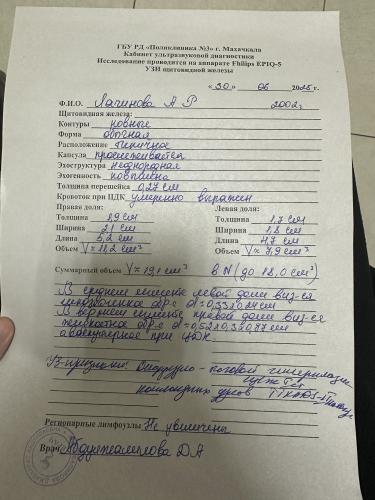 ГБУ РД «Поликлиника №3» г. Махачкала
Кабинет ультразвуковой диагностики
Исследование проводится на аппарате Philips EPIQ-5
УЗИ щитовидной железы
«30» 06 2025 г.
Ф.И.О. А Р 2002г
Щитовидная железа:
Контуры ровные
Форма обычная
Расположение типичное
Капсула прослеживается
Эхоструктура неоднородная
Эхогенность повышена
Толщина перешейка 0,27 см
Кровоток при ЦДК умеренно выражен
Правая доля: Левая доля:
Толщина 1,9 см Толщина 1,7 см
Ширина 2,1 см Ширина 1,8 см
Длина 5,2 см Длина 4,7 см
Объем V = 11,2 см³ Объем V = 7,9 см³
Суммарный объем V = 19,1 см³ в N (до 18,0 см³)
В среднем сегменте левой доли виз-ся
обр-е d = 0,33х0,24 см
В верхнем сегменте правой доли виз-ся
обр-е d = 0,52х0,3х0,87 см
аваскулярное при ЦДК
Уз-признаки: Диффузно-узловой гиперплазии
щ/ж I ст
коллоидных узлов
Регионарные лимфоузлы Не увеличены
Врач Д А